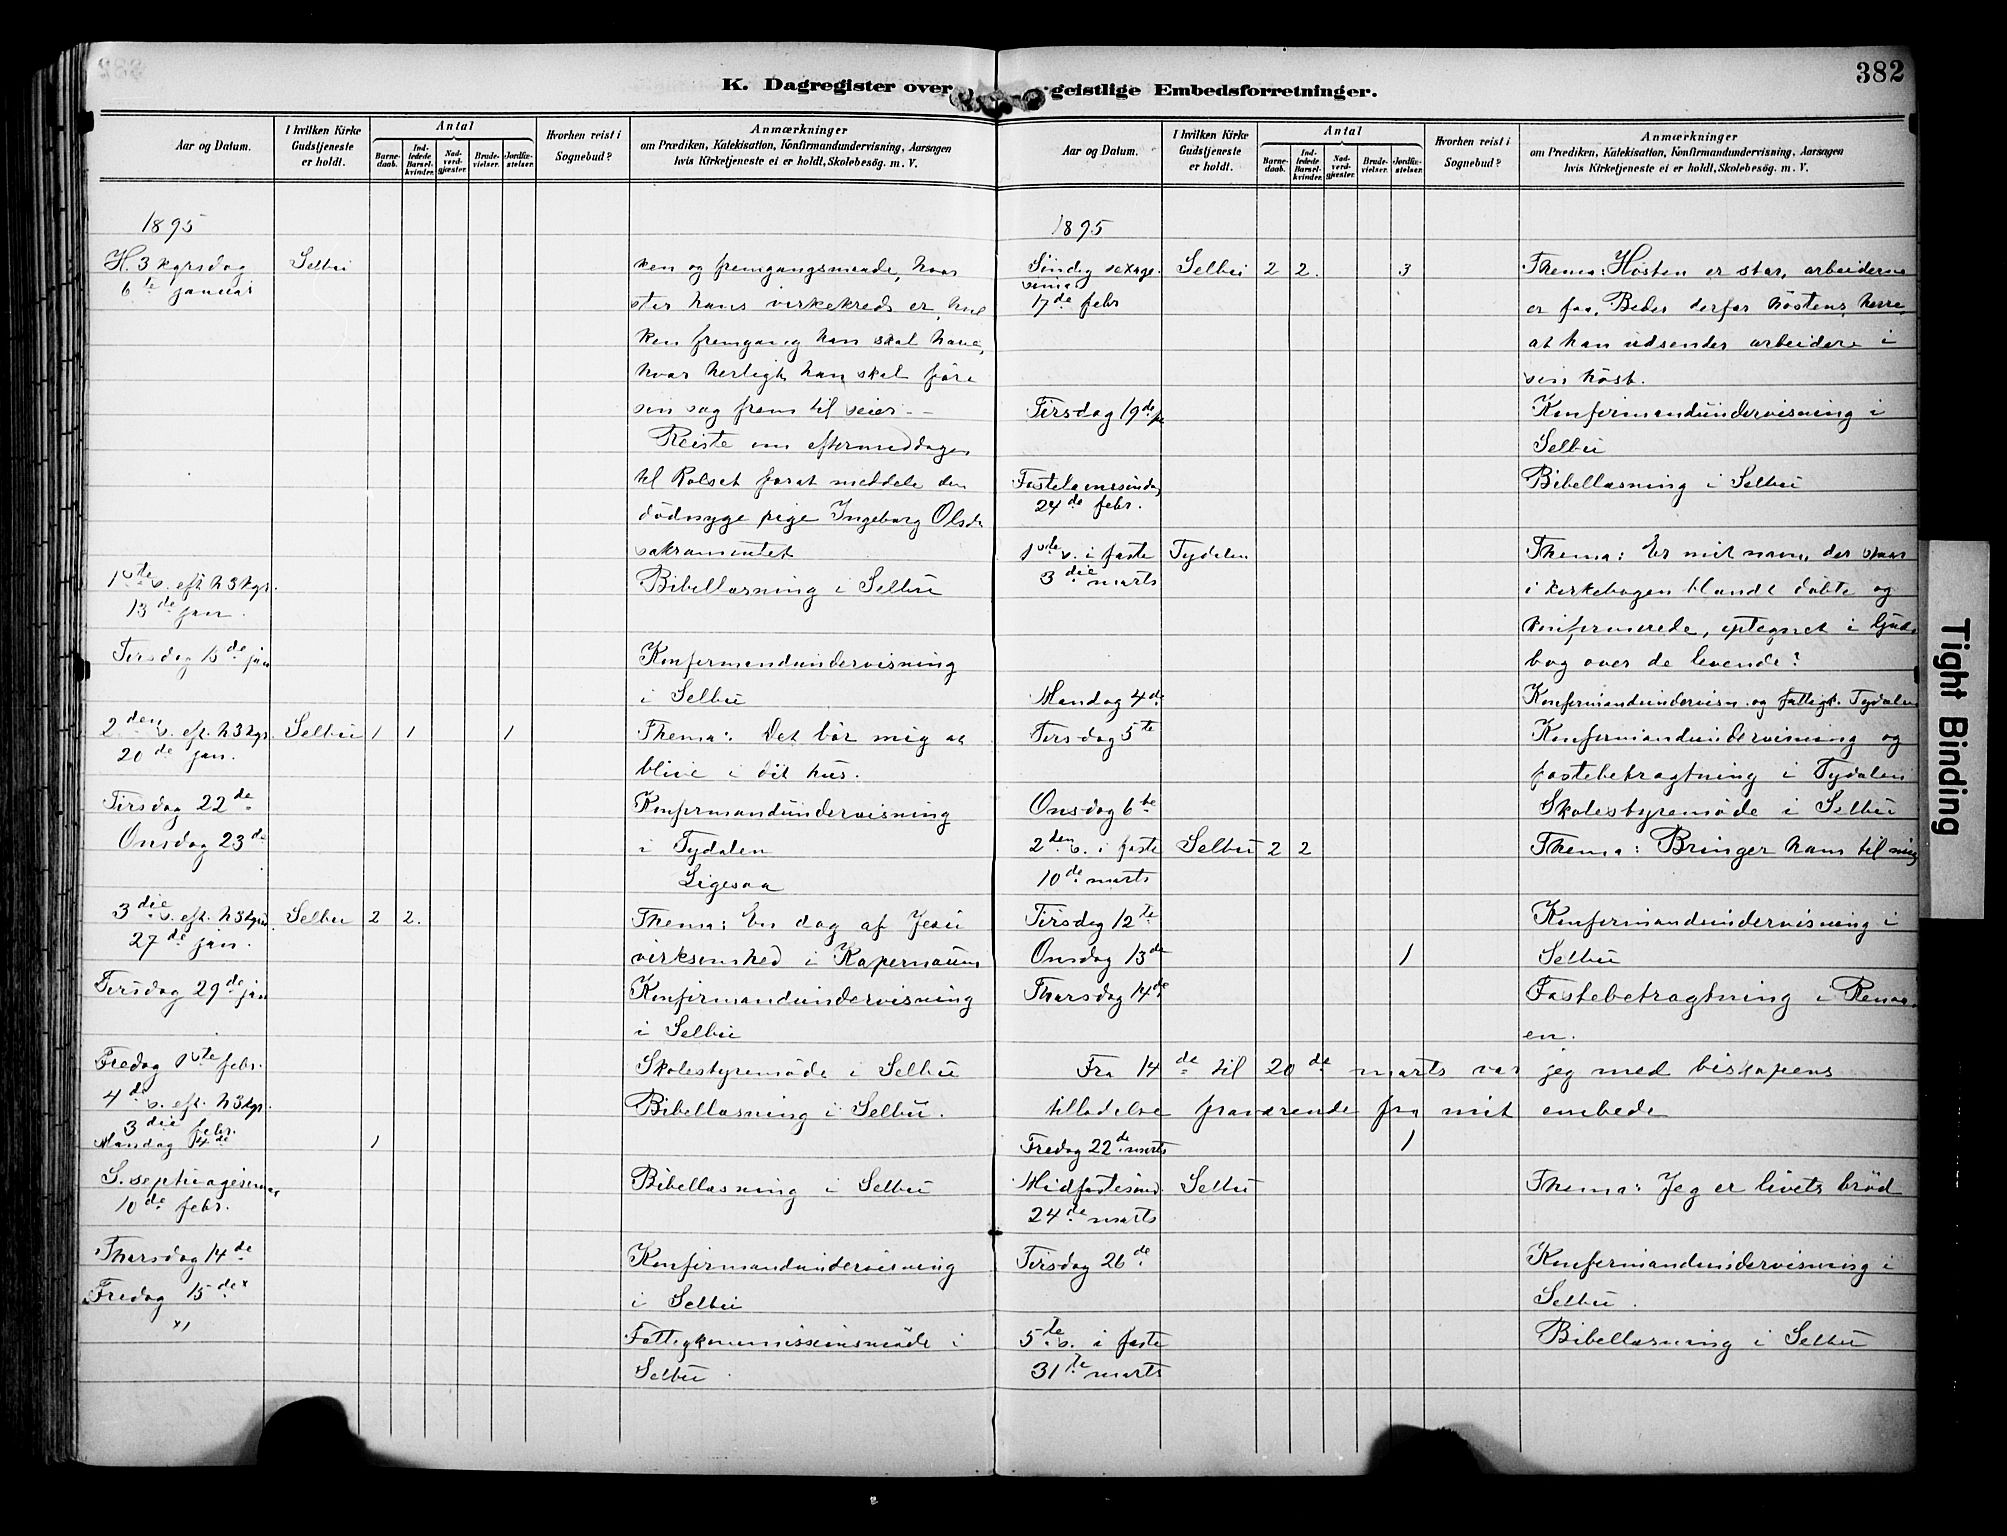 382
K. Dagregister over geistlige Embedsforretninger.
Aar og Datum.
I hvilken Kirke Gudstjeneste er holdt.
Antal
Barne-daab.
Ind-ledede Barsel-kvinder.
Nad-verd-gjæster.
Brude-vielser.
Jordfæ-stelser.
Hvorhen reist i Sognebud?
Anmærkninger
om Prædiken, Katekisation, Konfirmandundervisning, Aarsagen
hvis Kirketjeneste ei er holdt, Skolebesøg. m. V.
1895
H. 3 kgrsdag Selbu ken og fremgangsmaade, hvor
6te januar stor hans virkekreds er, hvil
ken fremgang han skal have,
hvor herligt han skal føre
sin sag frem til seier -
Reiste om eftermeddagen
til Rolset forat meddele den
dødssyge pige Ingeborg Olsdr
sakramentet
1ste s. eft. h3kgr. Bibellæsning i Selbu
13de jan.
Tirsdag 15de jan Konfirmandundervisning
i Selbu
2den s. eft. h3kgr. Selbu 1 1 1 Thema: Det bør mig at
20de jan. blive i dit hus.
Tirsdag 22de Konfirmandundervisning
Onsdag 23de i Tydalen
Ligesaa
3die s. eft. h3kgr. Selbu 2 2. Thema: En dag af Jesu
27de jan. virksomhed i Kapernaum
Tirsdag 29de jan Konfirmandundervisning
i Selbu
Fredag 1ste febr. Skolestyremøde i Selbu
4de s. eft. h3kgr. Bibellæsning i Selbu.
3die febr.
Mandag 4de 1
S. septuagesima Bibellæsning i Selbu
10de febr.
Thorsdag 14de Konfirmandundervisning
Fredag 15de x i Selbu
x1 Fattigkommissionsmøde i
Selbu.
Aar og Datum.
I hvilken Kirke Gudstjeneste er holdt.
Antal
Barne-daab.
Ind-ledede Barsel-kvinder.
Nad-verd-gjæster.
Brude-vielser.
Jordfæ-stelser.
Hvorhen reist i Sognebud?
Anmærkninger
om Prædiken, Katekisation, Konfirmandundervisning, Aarsagen
hvis Kirketjeneste ei er holdt, Skolebesøg. m. V.
1895
Søndag sexage Selbu 2 2. 3 Thema: Høsten er stor, arbeiderne
sima
17de febr er faa. Beder derfor høstens herre,
at han udsender arbeidere i
sin høst.
Tirsdag 19de Konfirmandundervisning i
Selbu
Fastelavnssøndag Bibellæsning i Selbu
24de febr.
1ste s. i faste Tydalen Thema: Er mit navn, der staar
3die marts i kirkebogen blandt døbte og
konfirmerede, optegnet i Guds
bog over de levende?
Mandag 4de Konfirmandundervisn. og fattigk. Tydalen
Tirsdag 5te Konfirmandundervisning og
fastebetragtning i Tydalen
Onsdag 6te Skolestyremøde i Selbu
2den s. i faste Selbu 2 2 Thema: Bringer ham til mig
10de marts
Tirsdag 12te Konfirmandundervisning i
Onsdag 13de 1 Selbu
Thorsdag 14de Fastebetragtning i Renaa
en.
Fra 14de til 20de marts var jeg med biskopens
tilladelse fraværende fra mit embede
Fredag 22de marts 1
Midfastesønd. Selbu Thema: Jeg er livets brød
24de marts
Tirsdag 26de Konfirmandundervisning i
Selbu.
5te s. i faste Bibellæsning i Selbu
31te marts
Tight Binding